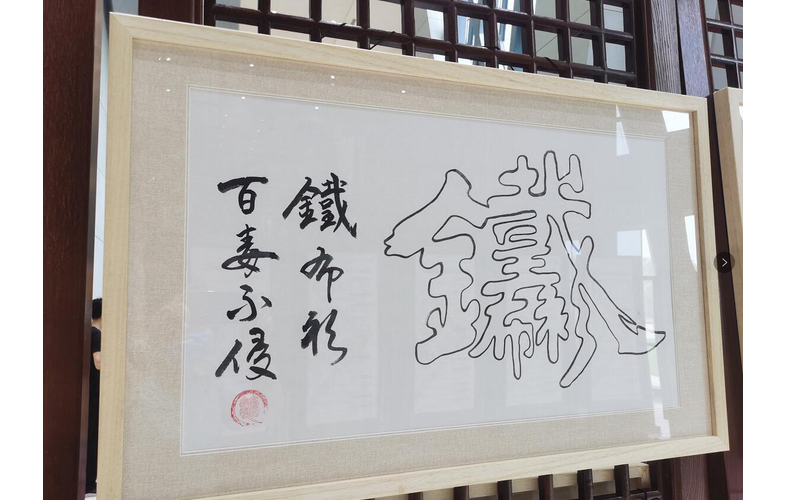 鐵
鐵布衫
百毒不侵